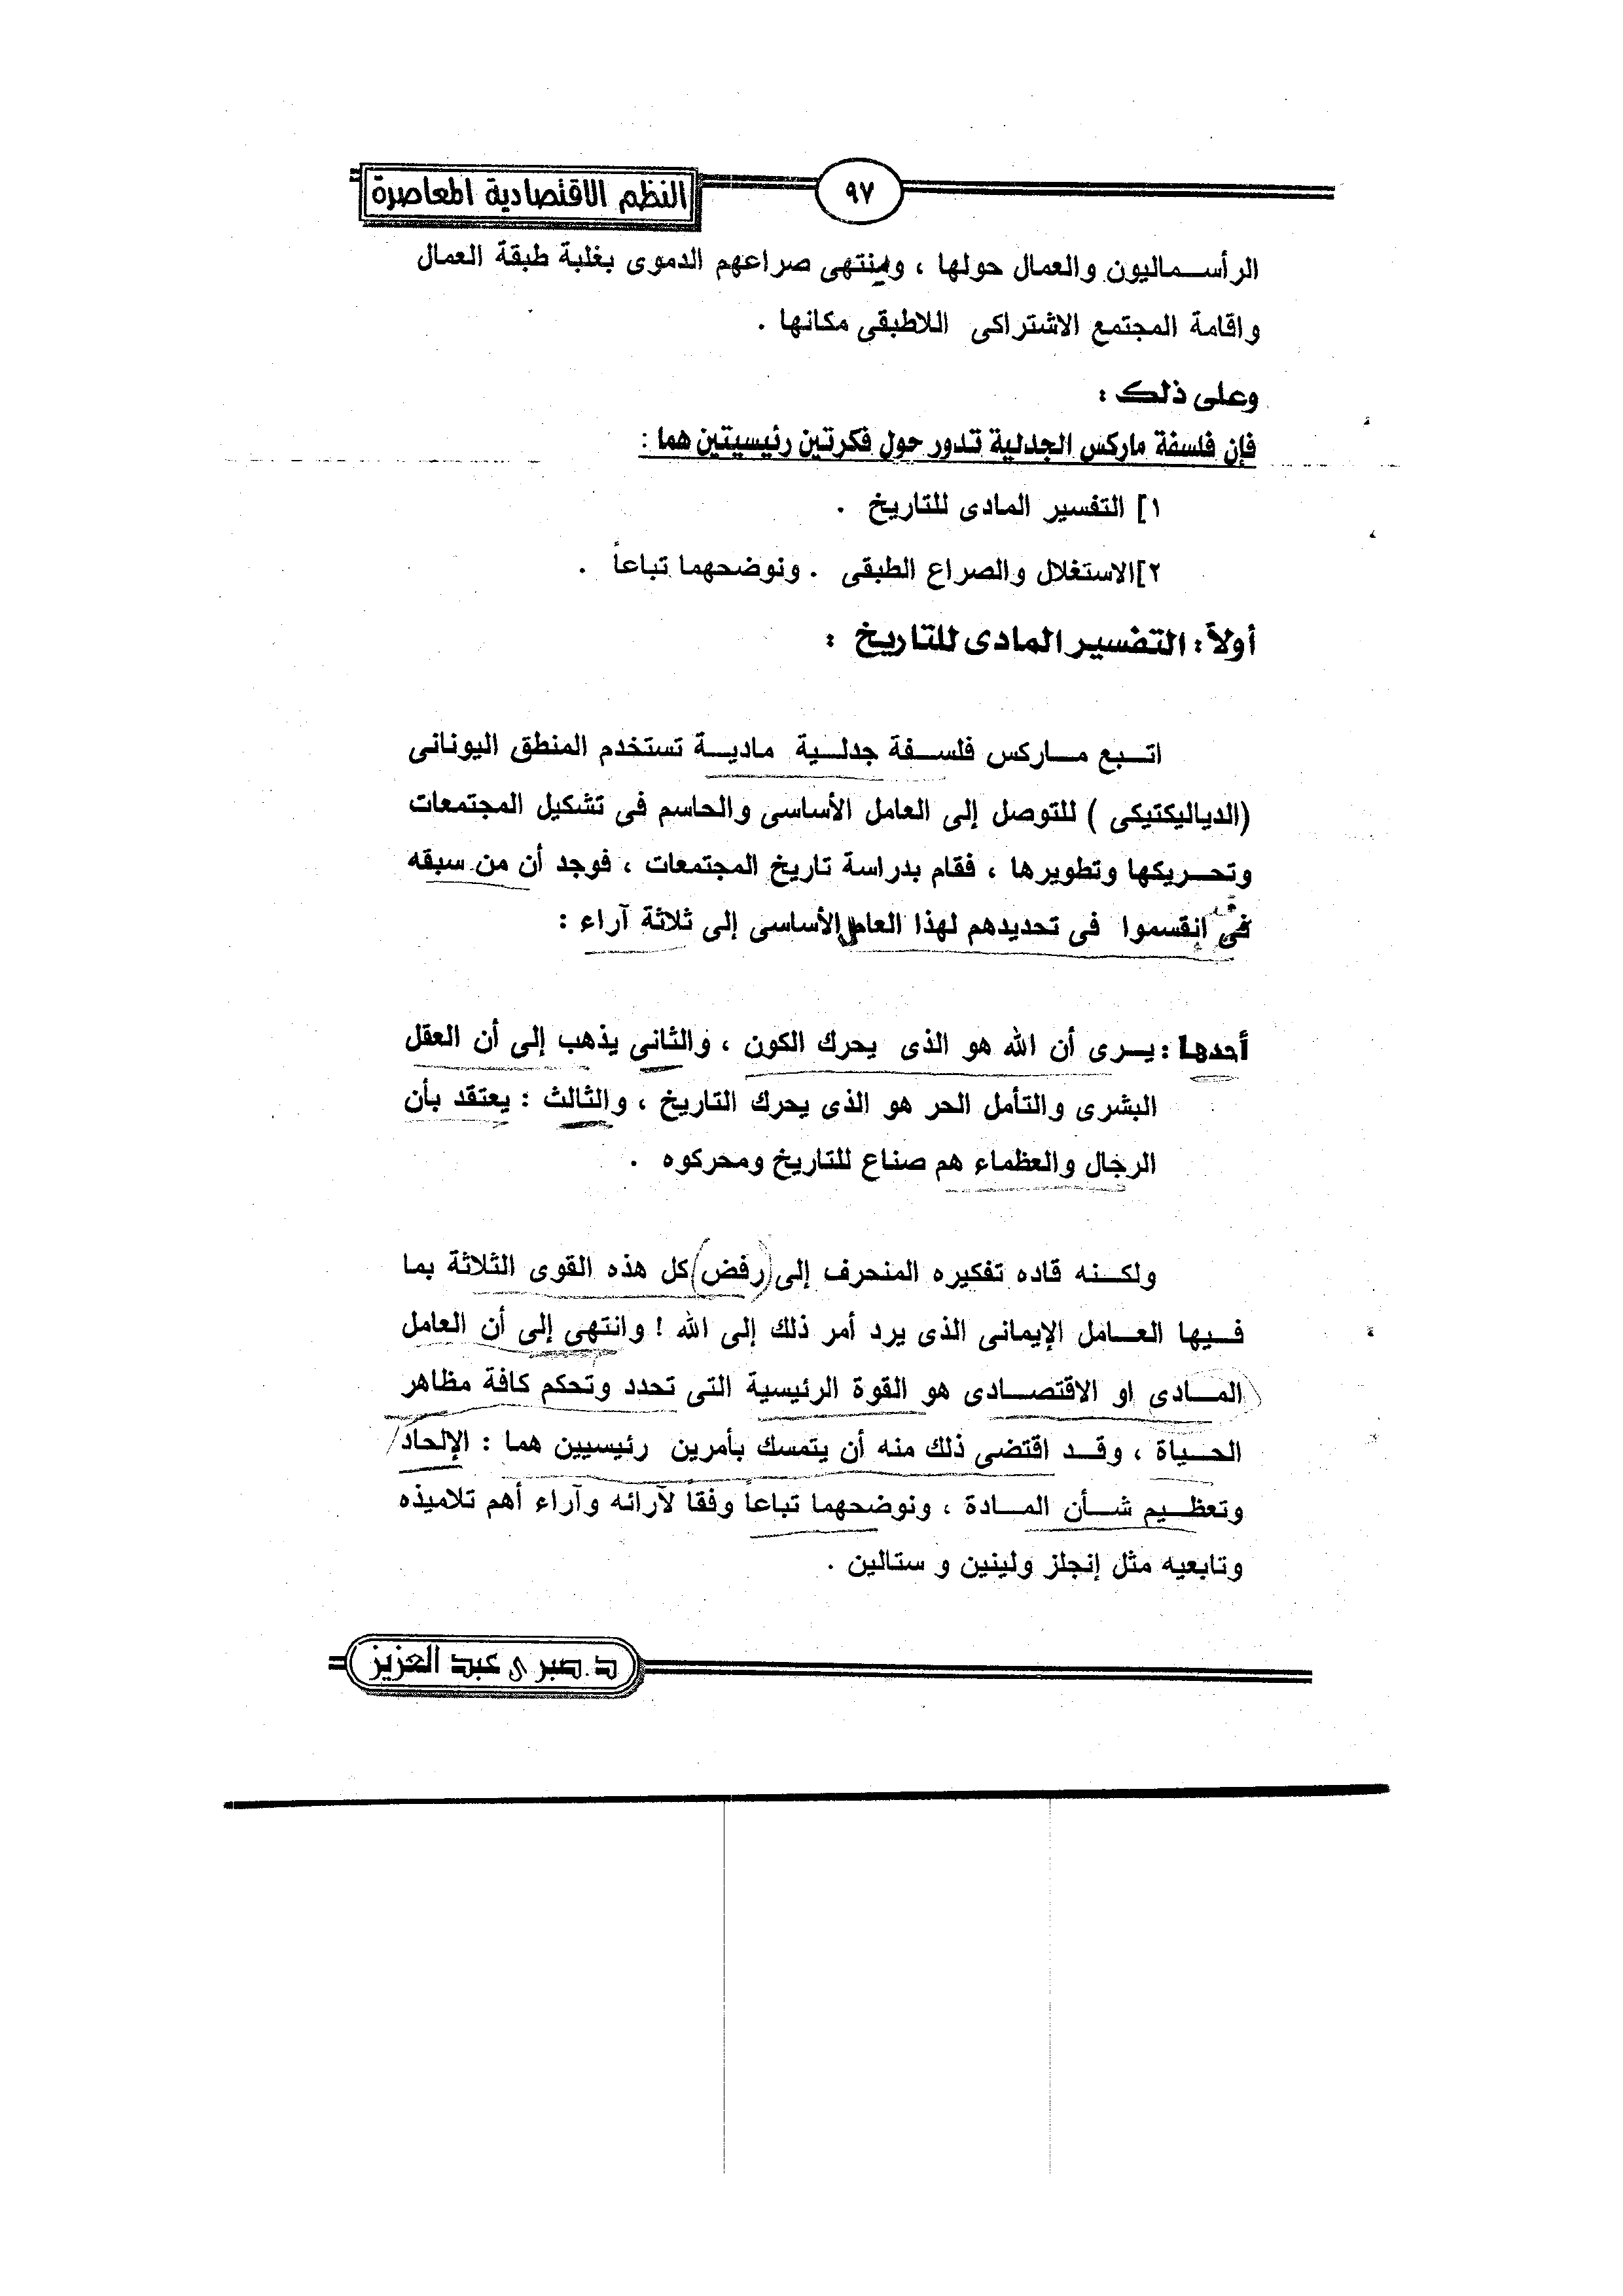 النظم الاقتصادية المعاصرة
٩٧
الرأسماليون والعمال حولها ، وينتهى صراعهم الدموى بغلبة طبقة العمال
واقامة المجتمع الاشتراكى اللاطبقى مكانها .
وعلى ذلك :
فإن فلسفة ماركس الجدلية تدور حول فكرتين رئيسيتين هما :
١] التفسير المادى للتاريخ .
٢]الاستغلال والصراع الطبقى . ونوضحهما تباعاً .
أولاً : التفسير المادى للتاريخ :
اتبع ماركس فلسفة جدلية مادية تستخدم المنطق اليونانى
(الدياليكتيكى ) للتوصل إلى العامل الأساسى والحاسم فى تشكيل المجتمعات
وتحريكها وتطويرها ، فقام بدراسة تاريخ المجتمعات ، فوجد أن من سبقه
فى انقسموا فى تحديدهم لهذا العامل الأساسى إلى ثلاثة آراء :
أحدها : يرى أن الله هو الذى يحرك الكون ، والثانى يذهب إلى أن العقل
البشرى والتأمل الحر هو الذى يحرك التاريخ ، والثالث : يعتقد بأن
الرجال والعظماء هم صناع للتاريخ ومحركوه .
ولكنه قاده تفكيره المنحرف إلى (رفض) كل هذه القوى الثلاثة بما
فيها العامل الإيمانى الذى يرد أمر ذلك إلى الله ! وانتهى إلى أن العامل
المادى او الاقتصادى هو القوة الرئيسية التى تحدد وتحكم كافة مظاهر
الحياة ، وقد اقتضى ذلك منه أن يتمسك بأمرين رئيسيين هما : الإلحاد
وتعظيم شأن المادة ، ونوضحهما تباعاً وفقاً لآرائه وآراء أهم تلاميذه
وتابعيه مثل إنجلز ولينين و ستالين .
د. صبرى عبد العزيز